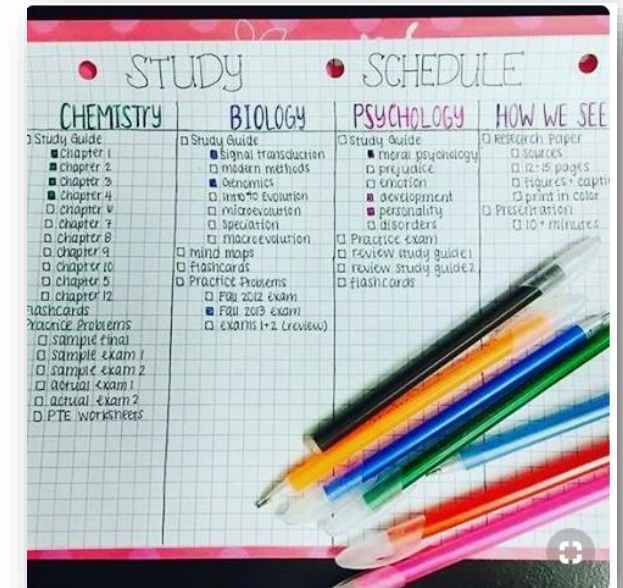 STUDY SCHEDULE
CHEMISTRY
Study Guide
Chapter 1
Chapter 2
Chapter 3
Chapter 4
Chapter 6
Chapter 7
Chapter 8
Chapter 9
Chapter 10
Chapter 5
Chapter 12
flashcards
Practice Problems
sample final
sample exam 1
sample exam 2
actual exam 1
actual exam 2
PTE worksheets
BIOLOGY
Study Guide
Signal transduction
modern methods
Genomics
Intro to Evolution
microevolution
speciation
macroevolution
mind maps
flashcards
Practice Problems
Fall 2012 exam
Fall 2013 exam
exams 1+2 (review)
PSYCHOLOGY
Study Guide
moral psychology
prejudice
emotion
development
personality
disorders
Practice exam
review study guide 1
review study guide 2
flashcards
HOW WE SEE
Research Paper
sources
12-15 pages
figures + capti
print in color
Presentation
10+ minutes